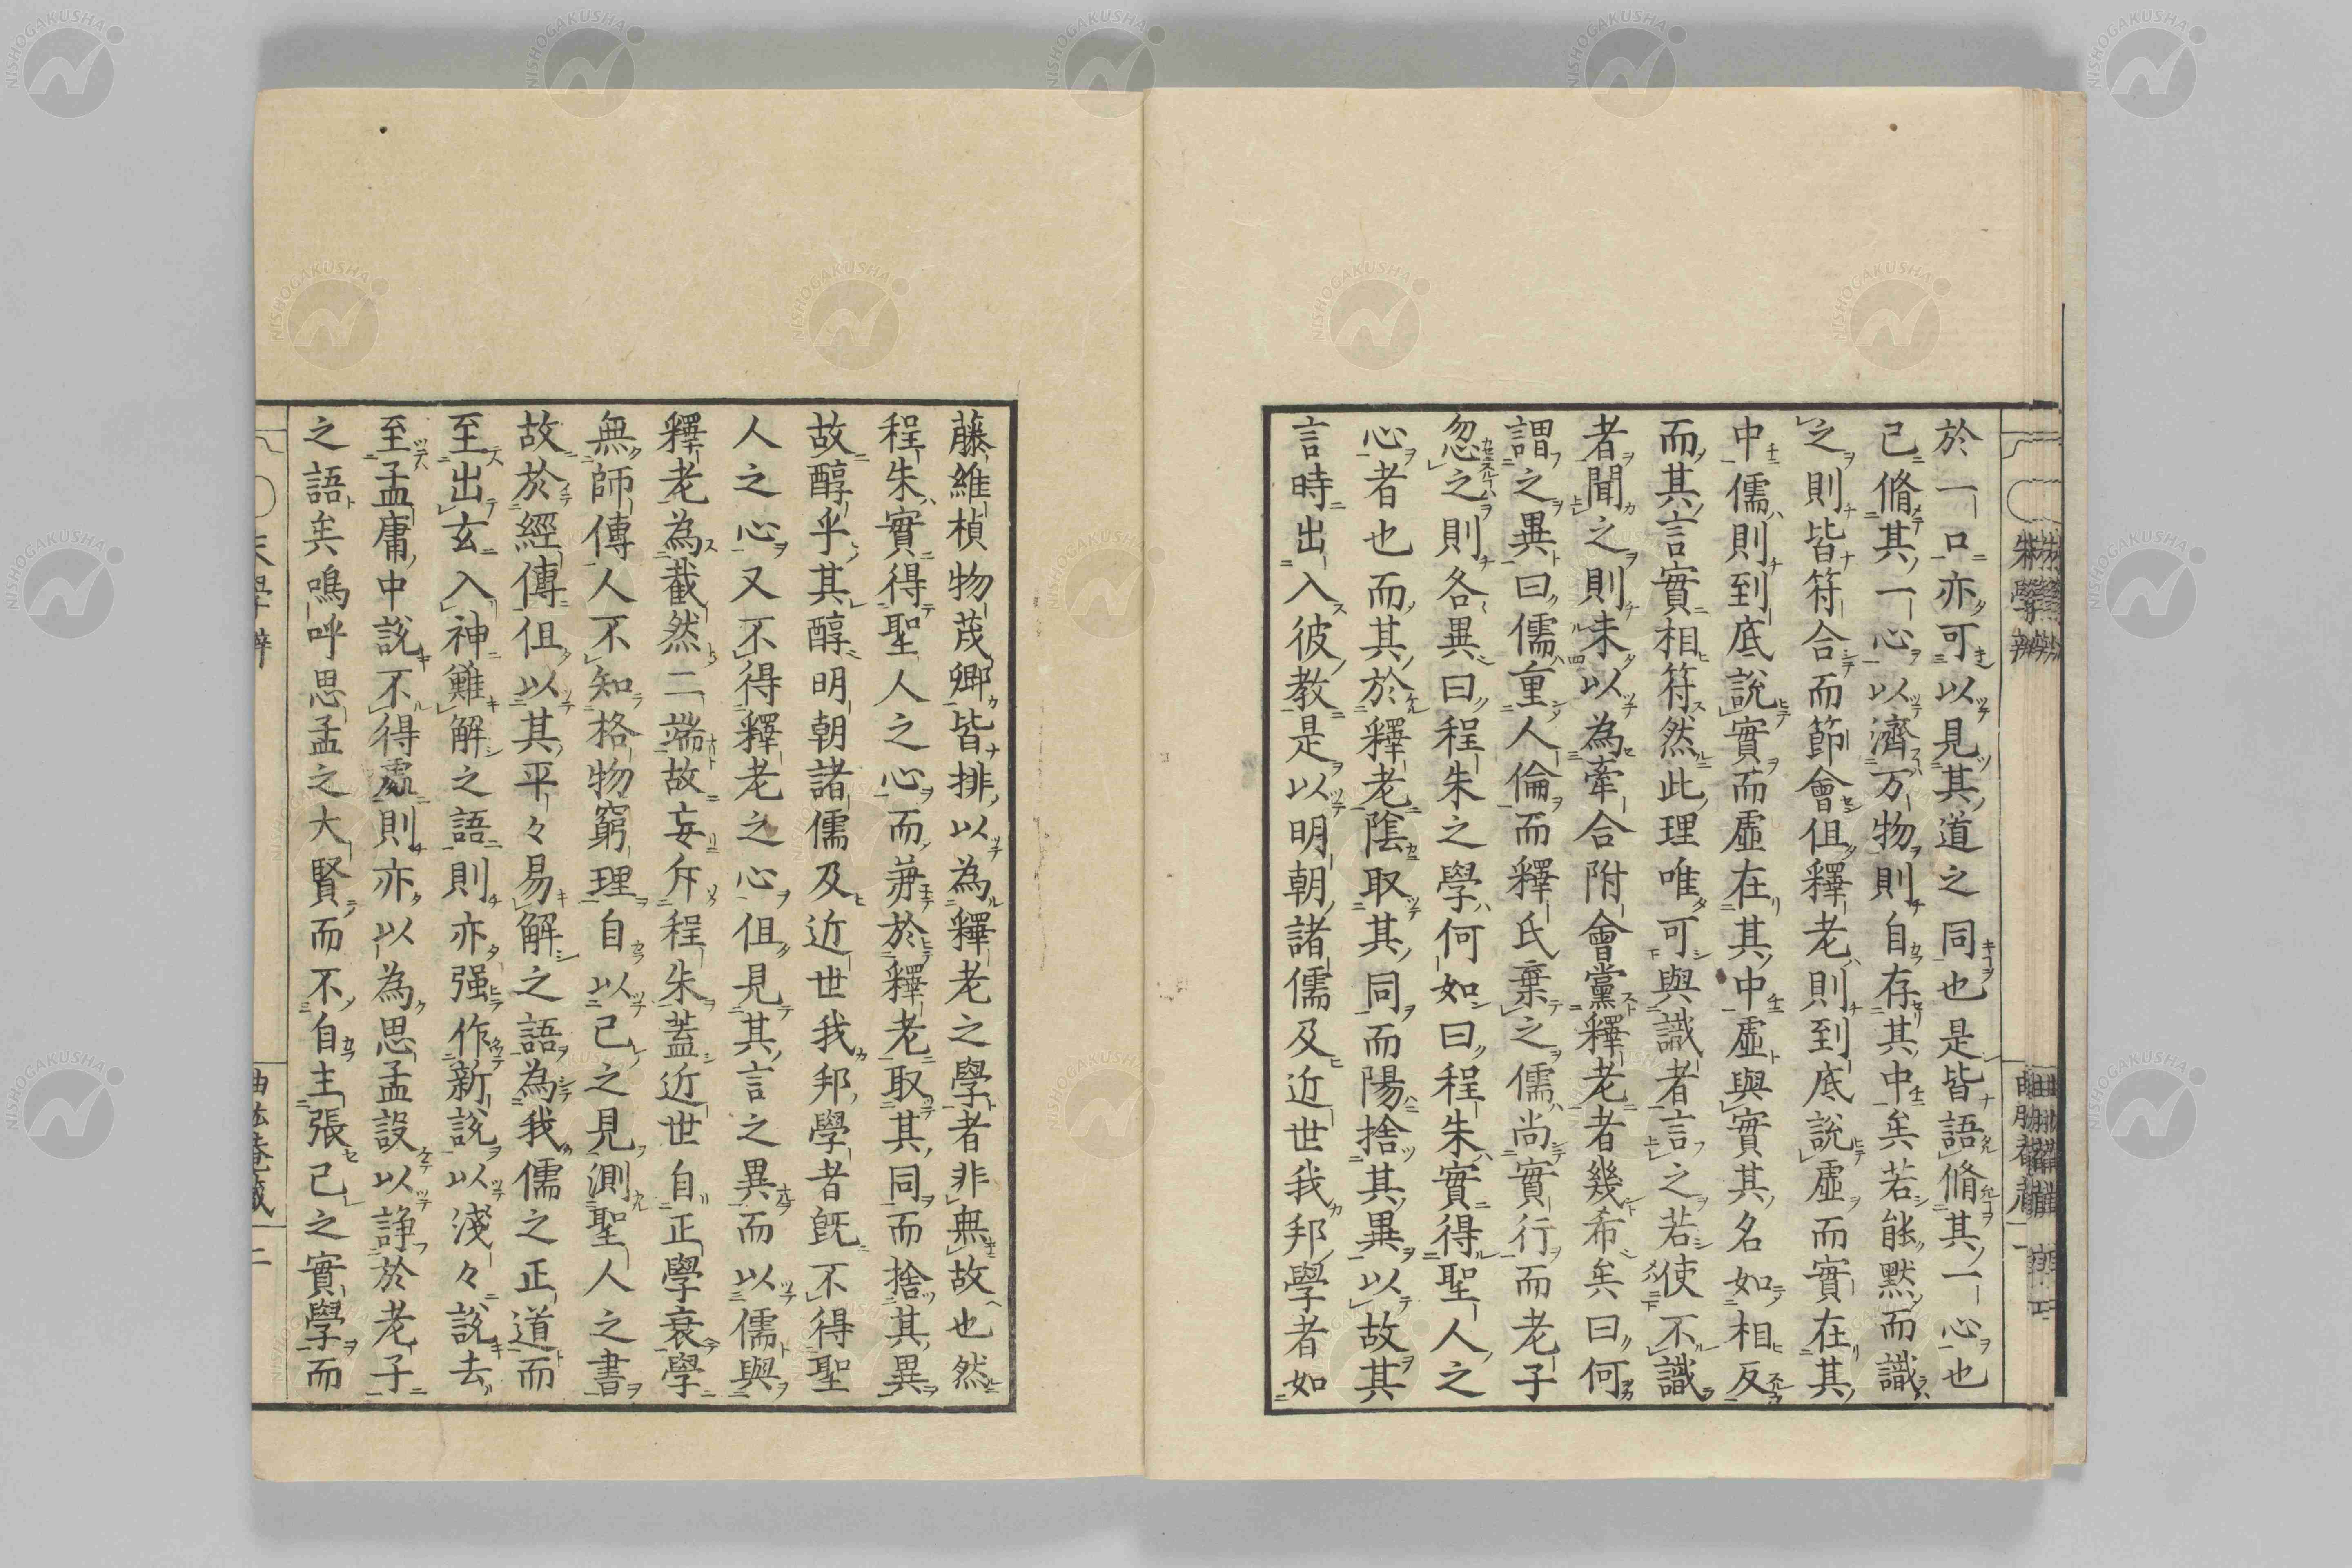 於一口亦可以見其道之同也是皆語脩其一心也
己脩其一心以濟万物則自存其中矣若能默而識
之則皆符合而節會但釋老則到底說虛而實在其
中儒則到底說實而虛在其中虛與實其名如相反
而其言實相符然此理唯可與識者言之若使不識
者聞之則未以為牽合附會黨釋老者幾希矣曰何
謂之異曰儒重人倫而釋氏棄之儒尚實行而老子
忽之則各異曰程朱之學何如曰程朱實得聖人之
心者也而其於釋老陰取其同而陽捨其異以故其
言時出入彼教是以明朝諸儒及近世我邦學者如
藤維楨物茂卿皆排以為釋老之學者非無故也然
程朱實得聖人之心而兼於釋老取其同而捨其異
故醇乎其醇明朝諸儒及近世我邦學者既不得聖
人之心又不得釋老之心但見其言之異而以儒與
釋老為截然二端故妄斥程朱蓋近世自正學衰學
無師傳人不知格物窮理自以己之見測聖人之書
故於經傳但以其平々易解之語為我儒之正道而
至出玄入神難解之語則亦强作新說以淺々說去
至孟庸中說不得處則亦以為思孟設以諍於老子
之語矣嗚呼思孟之大賢而不自主張己之實學而